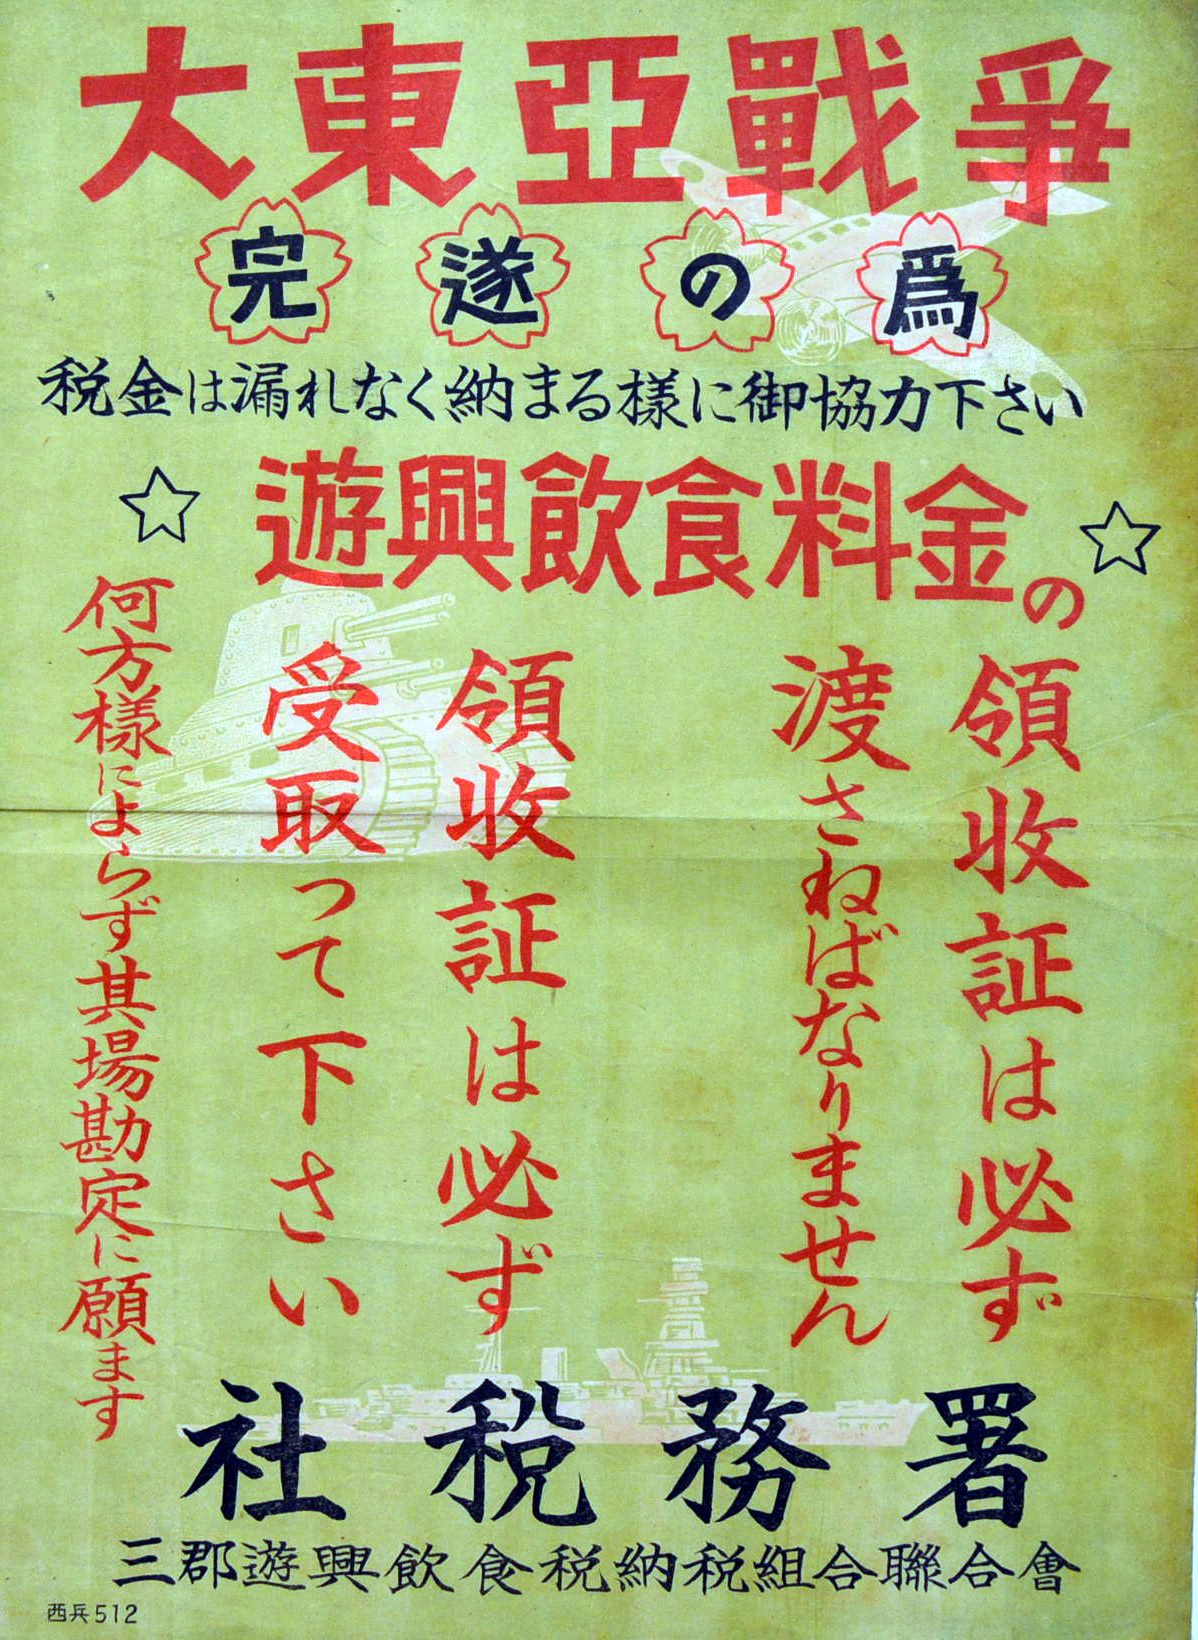 大東亞戰爭
完遂の爲
税金は漏れなく納まる様に御協力下さい
☆遊興飲食料金の☆
領收証は必ず
渡さねばなりません
領收証は必ず
受取って下さい
何方様によらず其場勘定に願ます
社税務署
三郡遊興飲食税納税組合聯合會
西兵512